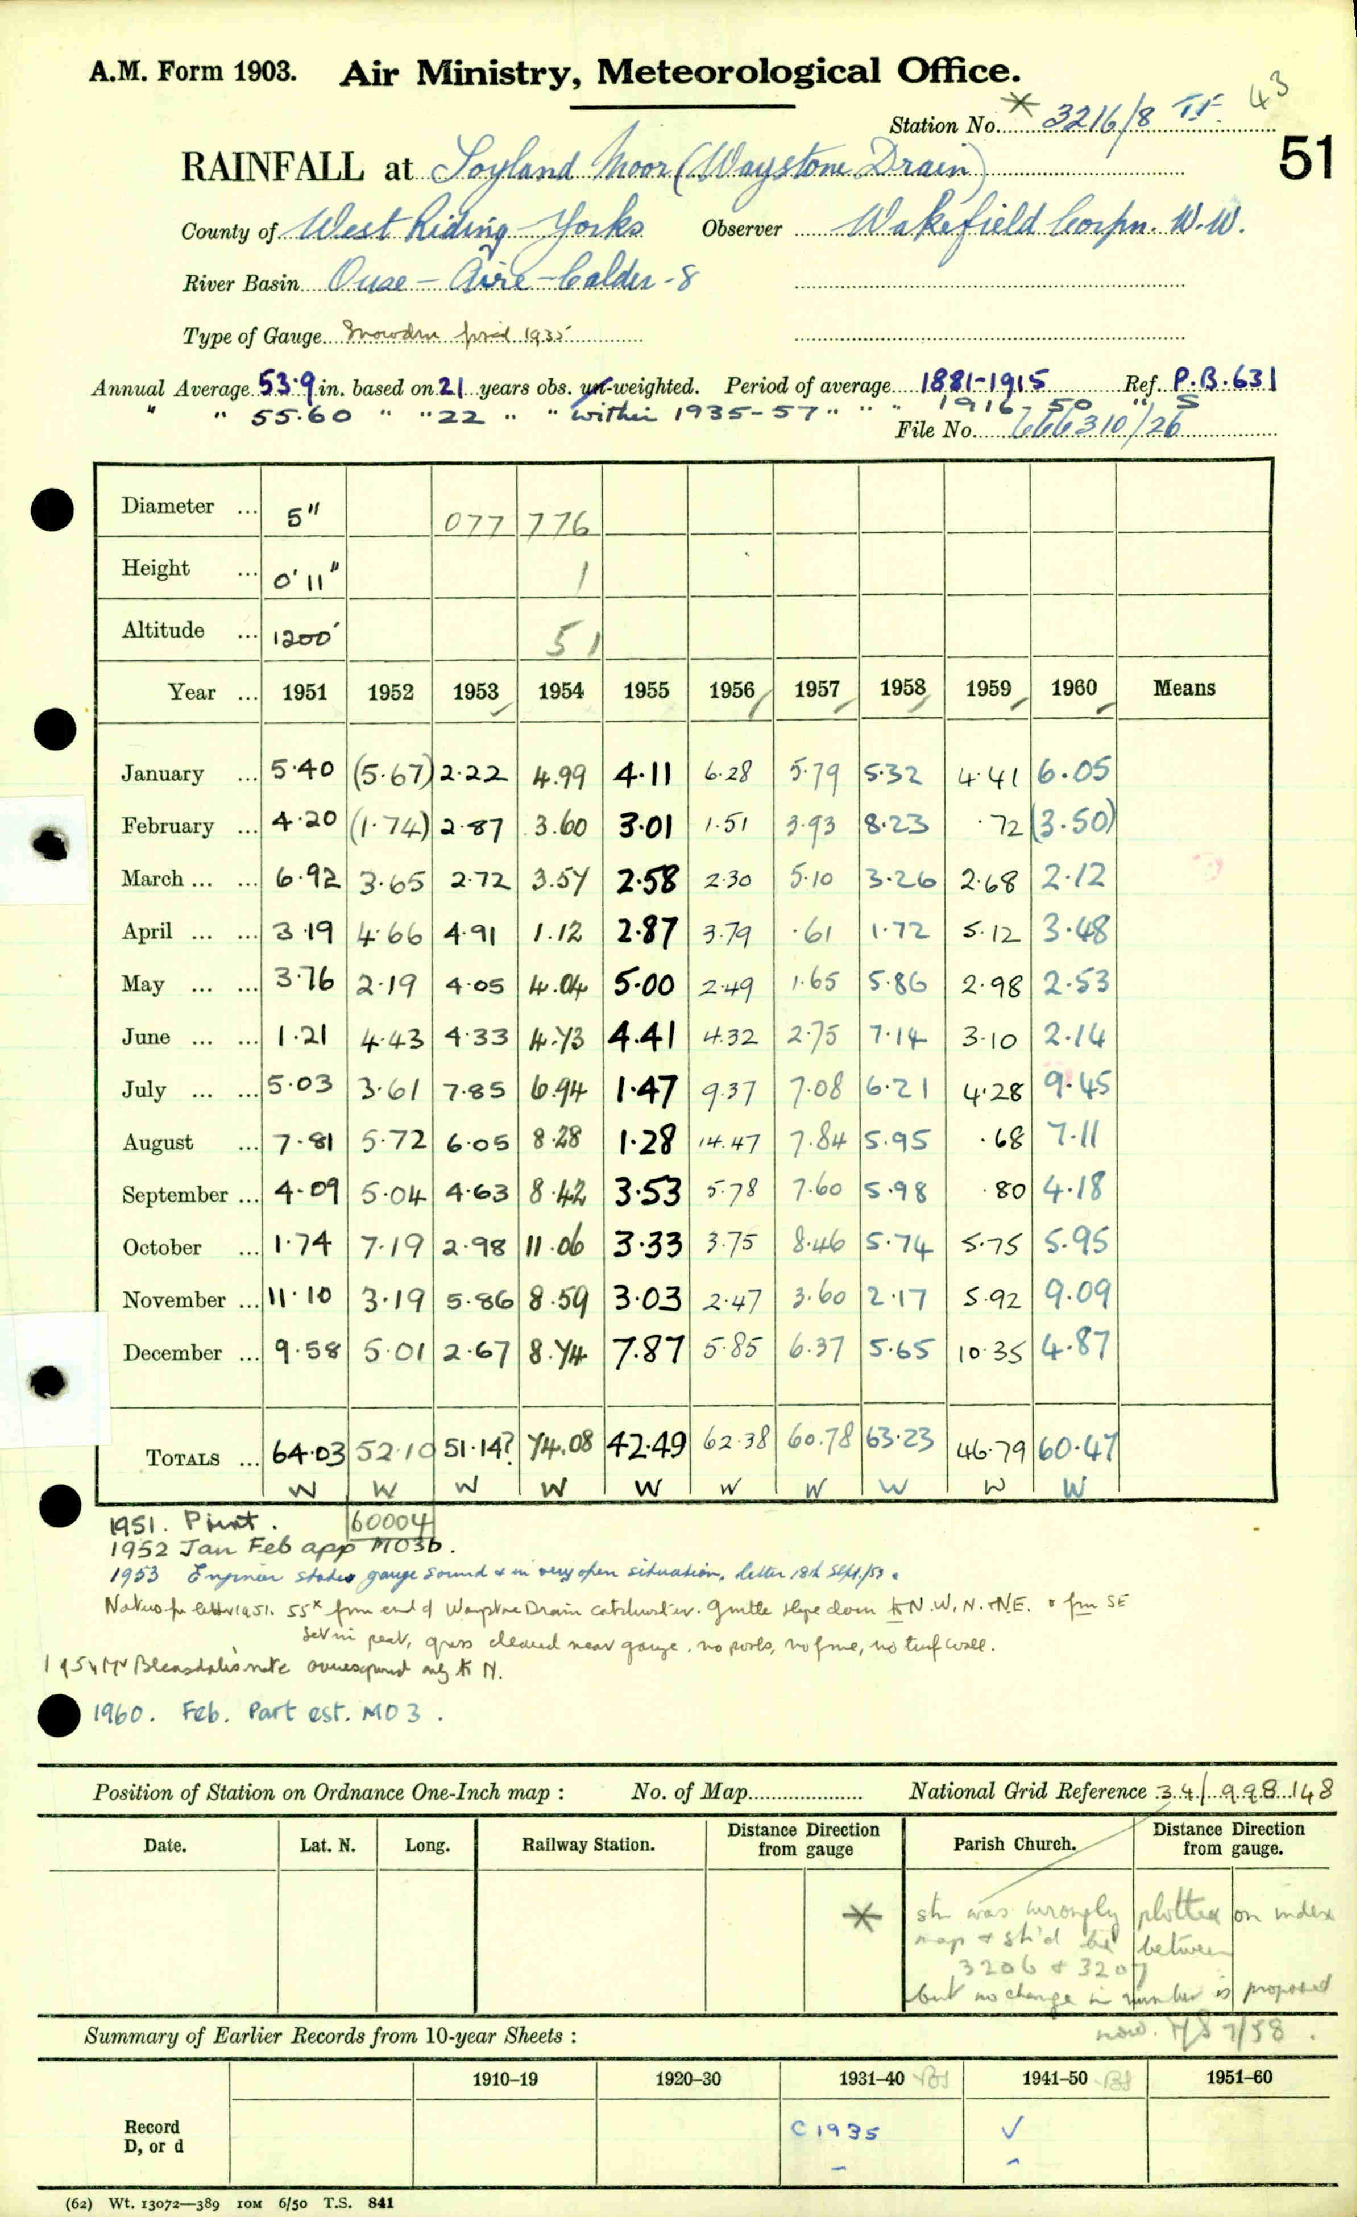 A.M. Form 1903. Air Ministry, Meteorological Office.
43
Station No. * 3216/8
51
RAINFALL at Soyland Moor (Waystone Drain)
County of West Riding - Yorks Observer Wakefield Corpn. W.W.
River Basin Ouse - Aire - Calder - 8
Type of Gauge Snowdon 1935
Annual Average 53.9 in. based on 21 years obs. un-weighted. Period of average 1881-1915 Ref. P.B.631
" " 55.60 " " 22 " " within 1935-57 " " " 1916-50 " S
File No. 666310/26
Diameter ... 5" 077 776
Height ... 0' 11" 1
Altitude ... 1200' 51
Year ... 1951 1952 1953 1954 1955 1956 1957 1958 1959 1960 Means
January ... 5.40 (5.67) 2.22 4.99 4.11 6.28 5.79 5.32 4.41 6.05
February ... 4.20 (1.74) 2.87 3.60 3.01 1.51 3.93 8.23 .72 (3.50)
March ... ... 6.92 3.65 2.72 3.57 2.58 2.30 5.10 3.26 2.68 2.12
April ... ... 3.19 4.66 4.91 1.12 2.87 3.79 .61 1.72 5.12 3.48
May ... ... 3.76 2.19 4.05 4.04 5.00 2.49 1.65 5.86 2.98 2.53
June ... ... 1.21 4.43 4.33 4.73 4.41 4.32 2.75 7.14 3.10 2.14
July ... ... 5.03 3.61 7.85 6.94 1.47 9.37 7.08 6.21 4.28 9.45
August ... 7.81 5.72 6.05 8.28 1.28 14.47 7.84 5.95 .68 7.11
September ... 4.09 5.04 4.63 8.42 3.53 5.78 7.60 5.98 .80 4.18
October ... 1.74 7.19 2.98 11.06 3.33 3.75 8.46 5.74 5.75 5.95
November ... 11.10 3.19 5.86 8.59 3.03 2.47 3.60 2.17 5.92 9.09
December ... 9.58 5.01 2.67 8.74 7.87 5.85 6.37 5.65 10.35 4.87
TOTALS ... 64.03 52.10 51.14? 74.08 42.49 62.38 60.78 63.23 46.79 60.47
W W W W W W W W W W
1951. Print. 60004
1952 Jan Feb app MO3b.
1953 Engineer states gauge sound & in very open situation, letter 18th Sept/53.
from end of Waystone Drain catchwater. Gentle slope down to N.W, N. & NE. & from SE
Set in peat, grass cleared near gauge. no posts, no fence, no turf wall.
1954 Mr Bleasdale's note only to N.
1960. Feb. Part est. MO3.
Position of Station on Ordnance One-Inch map : No. of Map National Grid Reference 34/998148
Date. Lat. N. Long. Railway Station. Distance Direction from gauge Parish Church. Distance Direction from gauge.
* stn was wrongly plotted on index
map & sh'd be between
3206 & 3207
but no change in number is proposed
now. 7/58.
Summary of Earlier Records from 10-year Sheets :
1910–19 1920–30 1931–40 1941–50 1951–60
Record
D, or d
C 1935 ✓
(62) Wt. 13072—389 10M 6/50 T.S. 841